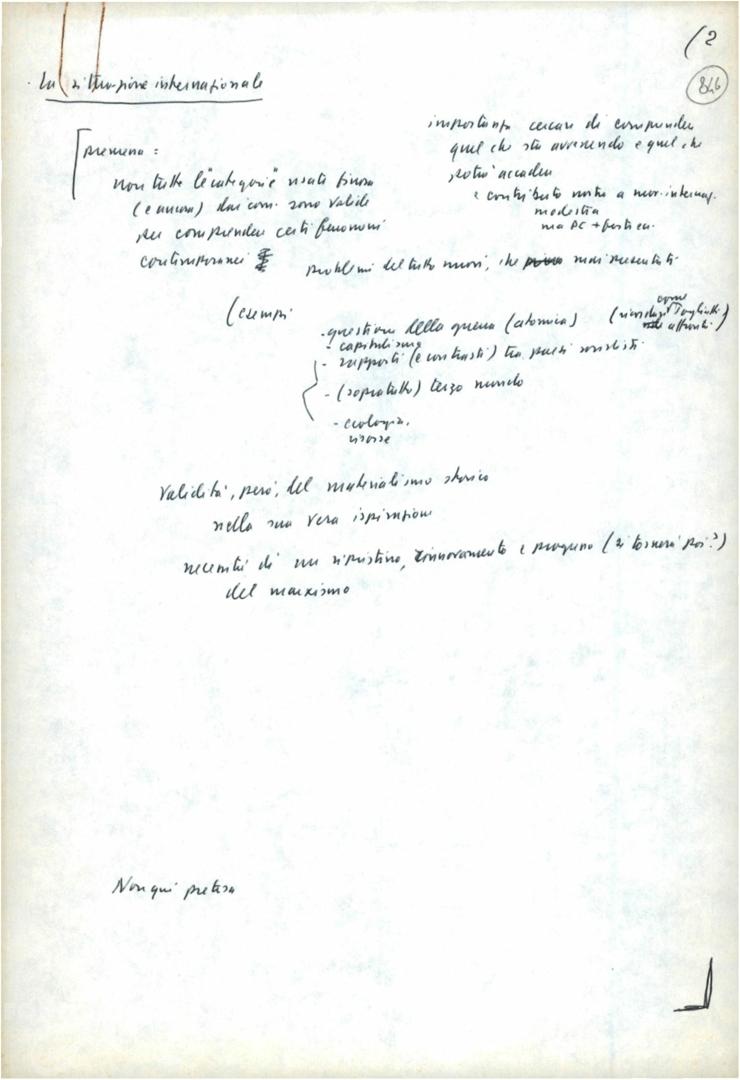 (2
846
· La situazione internazionale
importanza cercare di comprendere
quel che sta avvenendo e quel che
potrà accadere
e contributo nostro a mov. internaz.
modestia
ma PC + forti cap.
premessa :
non tutte le "categorie" usate finora
(e ancora) dai com. sono valide
per comprendere certi fenomeni
contemporanei
problemi del tutto nuovi, che mai presentati
(esempi
- questione della guerra (atomica)
(ricordare come Togliatti affrontò)
- capitalismo
- rapporti (e contrasti) tra paesi socialisti
- (soprattutto) terzo mondo
- ecologia,
risorse
Validità, però, del materialismo storico
nella sua vera ispirazione
necessità di un ripristino, rinnovamento e progresso (si tornerà poi?)
del marxismo
Non qui pretesa